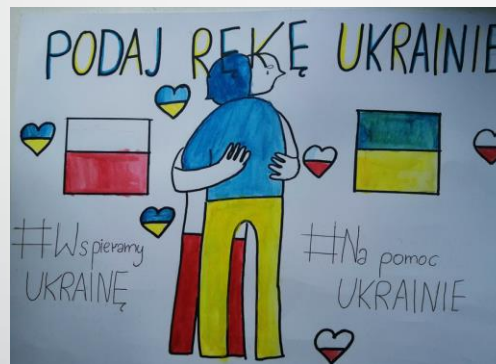 PODAJ RĘKĘ UKRAINIE
#Wspieramy
UKRAINĘ
#Na pomoc
UKRAINIE